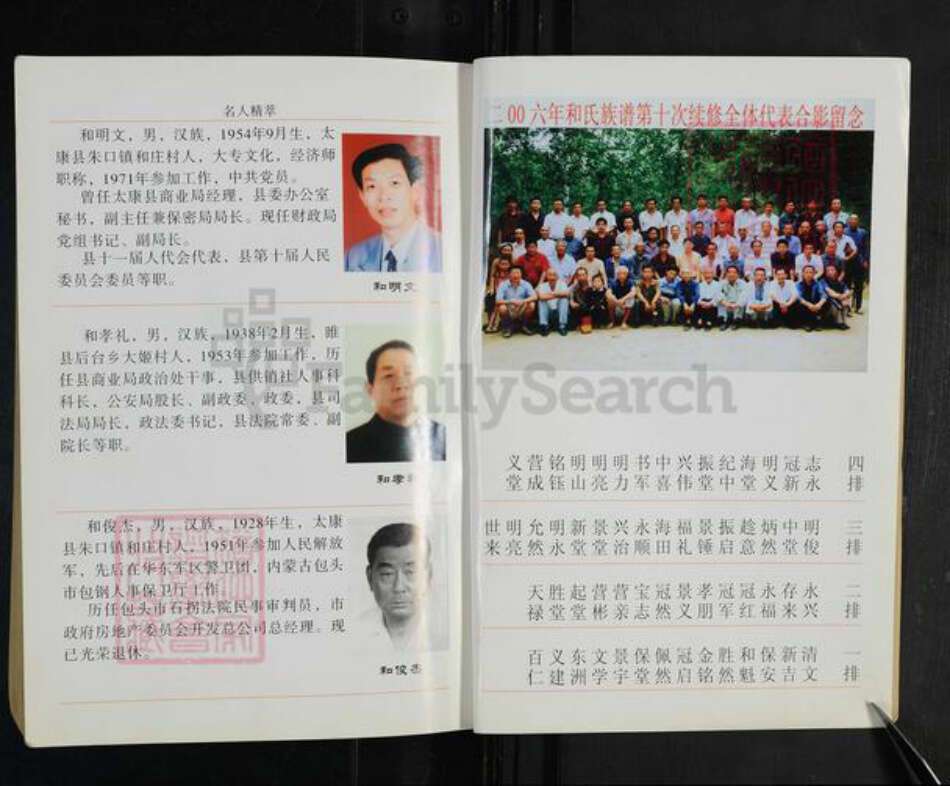 名人精萃
和明文，男，汉族，1954年9月生，太
康县朱口镇和庄村人，大专文化，经济师
职称，1971年参加工作，中共党员。
曾任太康县商业局经理，县委办公室
秘书，副主任兼保密局局长。现任财政局
党组书记、副局长。
县十一届人代会代表，县第十届人民
委员会委员等职。
和明文
和孝礼，男，汉族，1938年2月生，睢
县后台乡大姬村人，1953年参加工作，历
任县商业局政治处干事，县供销社人事科
科长，公安局股长、副政委、政委，县司
法局局长，政法委书记，县法院常委、副
院长等职。
和孝
和俊杰，男，汉族，1928年生，太康
县朱口镇和庄村人，1951年参加人民解放
军，先后在华东军区警卫团，内蒙古包头
市包钢人事保卫厅工作。
历任包头市石拐法院民事审判员，市
政府房地产委员会开发总公司总经理。现
已光荣退休。
和俊杰
二00六年和氏族谱第十次续修全体代表合影留念
FamilySearch
义营铭明明明书中兴振纪海明冠志 四
堂成钰山亮力军喜伟堂中堂义新永 排
世明允明新景兴永海福景振趁炳中明 三
来亮然永堂堂治顺田礼锤启意然堂俊 排
天胜起营营宝冠景孝冠冠永存永 二
禄堂彬亲志然义朋军红福来兴 排
百义东文景保佩冠金胜和保新清 一
仁建洲学宇堂然启铭然魁安吉文 排